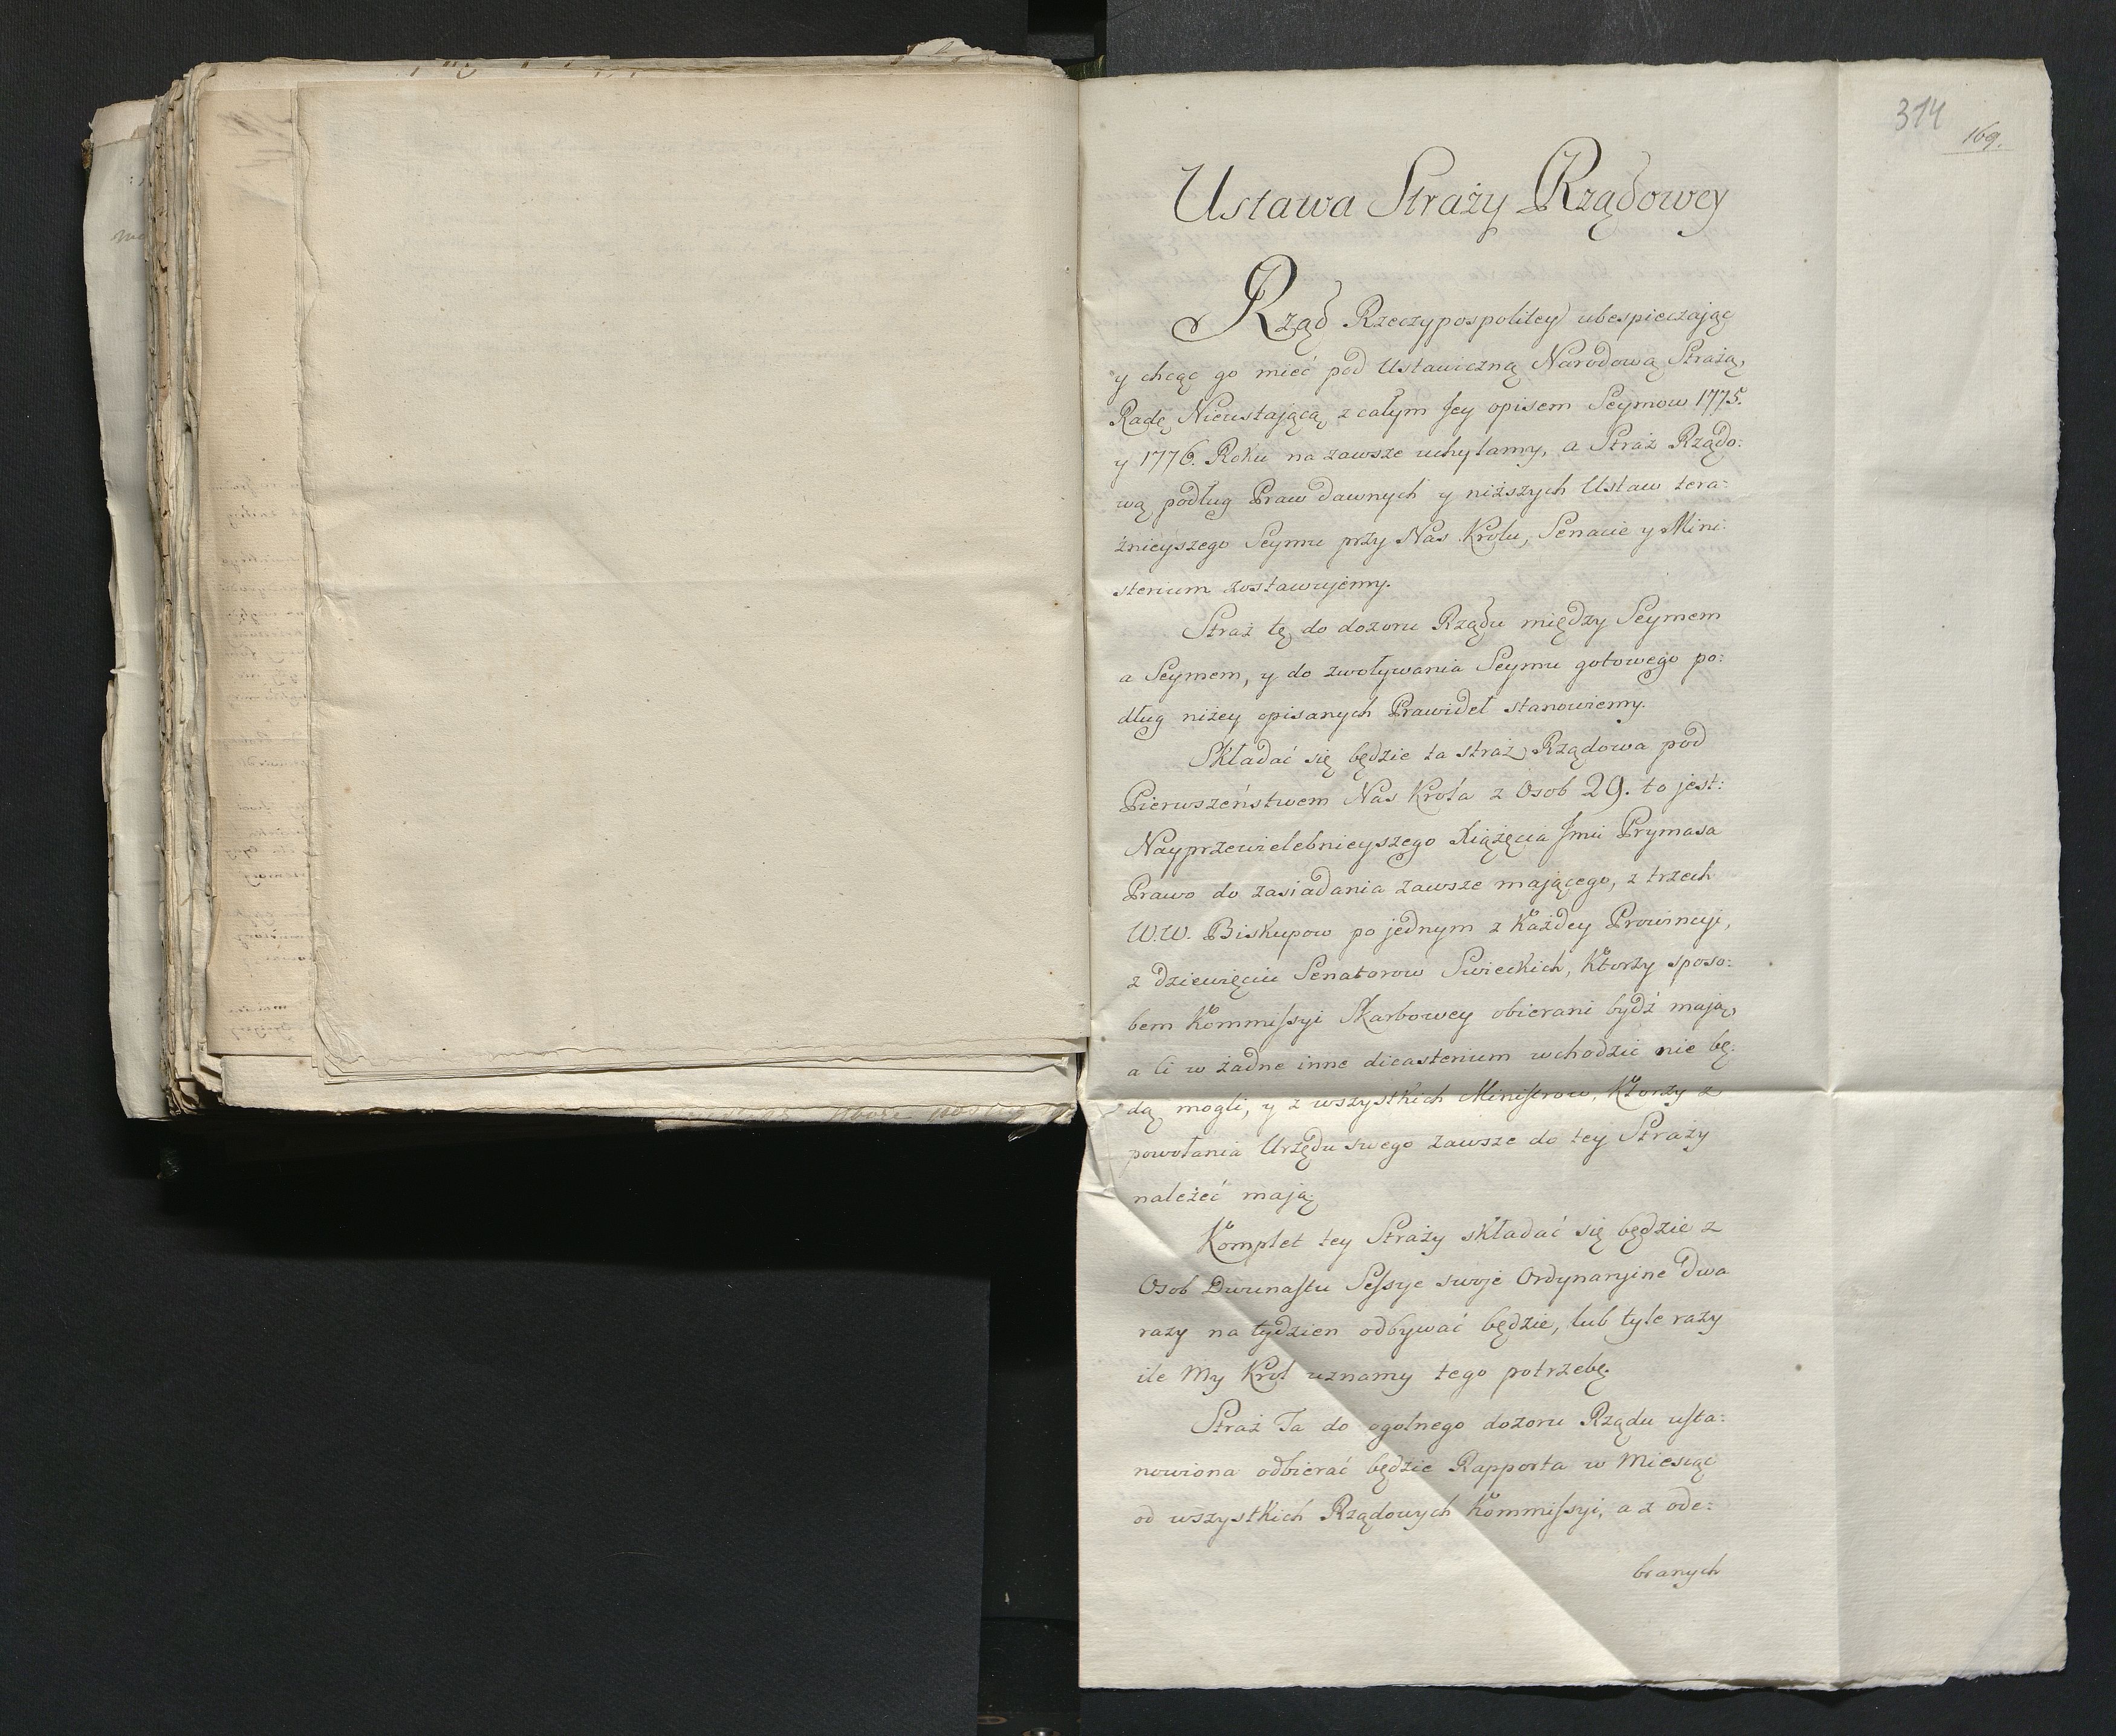 314
169.
Ustawa Straży Rządowey
Rząd Rzeczypospolitey ubespieczając
y chcąc go mieć pod Ustawiczną Narodową Strażą,
Radę Nieustającą z całym Jey opisem Seymow 1775.
y 1776. Roku na zawsze uchylamy, a Straż Rządo:
wą podług Praw dawnych y niższych Ustaw tera:
źnieyszego Seymu przy Nas Krolu, Senacie y Mini:
sterium zostawujemy.
Straż tę do dozoru Rządu między Seymem
a Seymem, y do zwoływania Seymu gotowego po:
dług niżey opisanych Prawideł stanowiemy.
Składać się będzie ta straż Rządowa pod
Pierwszeństwem Nas Krola z Osob 29. to jest:
Nayprzewielebnieyszego Xiążęcia Jmci Prymasa
Prawo do zasiadania zawsze mającego, z trzech
W.W. Biskupow po jednym z Każdey Prowincyi,
z dziewięciu Senatorow Swieckich, Ktorzy sposo:
bem Kommissyi Skarbowey obierani bydź mają,
a Ci w żadne inne dicasterium wchodzić nie bę:
dą mogli, y z wszystkich Ministrow, Ktorzy z
powołania Urzędu swego zawsze do tey Straży
należeć mają.
Komplet tey Straży składać się będzie z
Osob Dwunastu Sessye swoje Ordynaryine dwa
razy na tydzien odbywać będzie, lub tyle razy
ile My Krol uznamy tego potrzebę.
Straż Ta do ogolnego dozoru Rządu usta:
nowiona odbierać będzie Rapporta w Miesiąc
od wszystkich Rządowych Kommissyi, a z ode:
branych